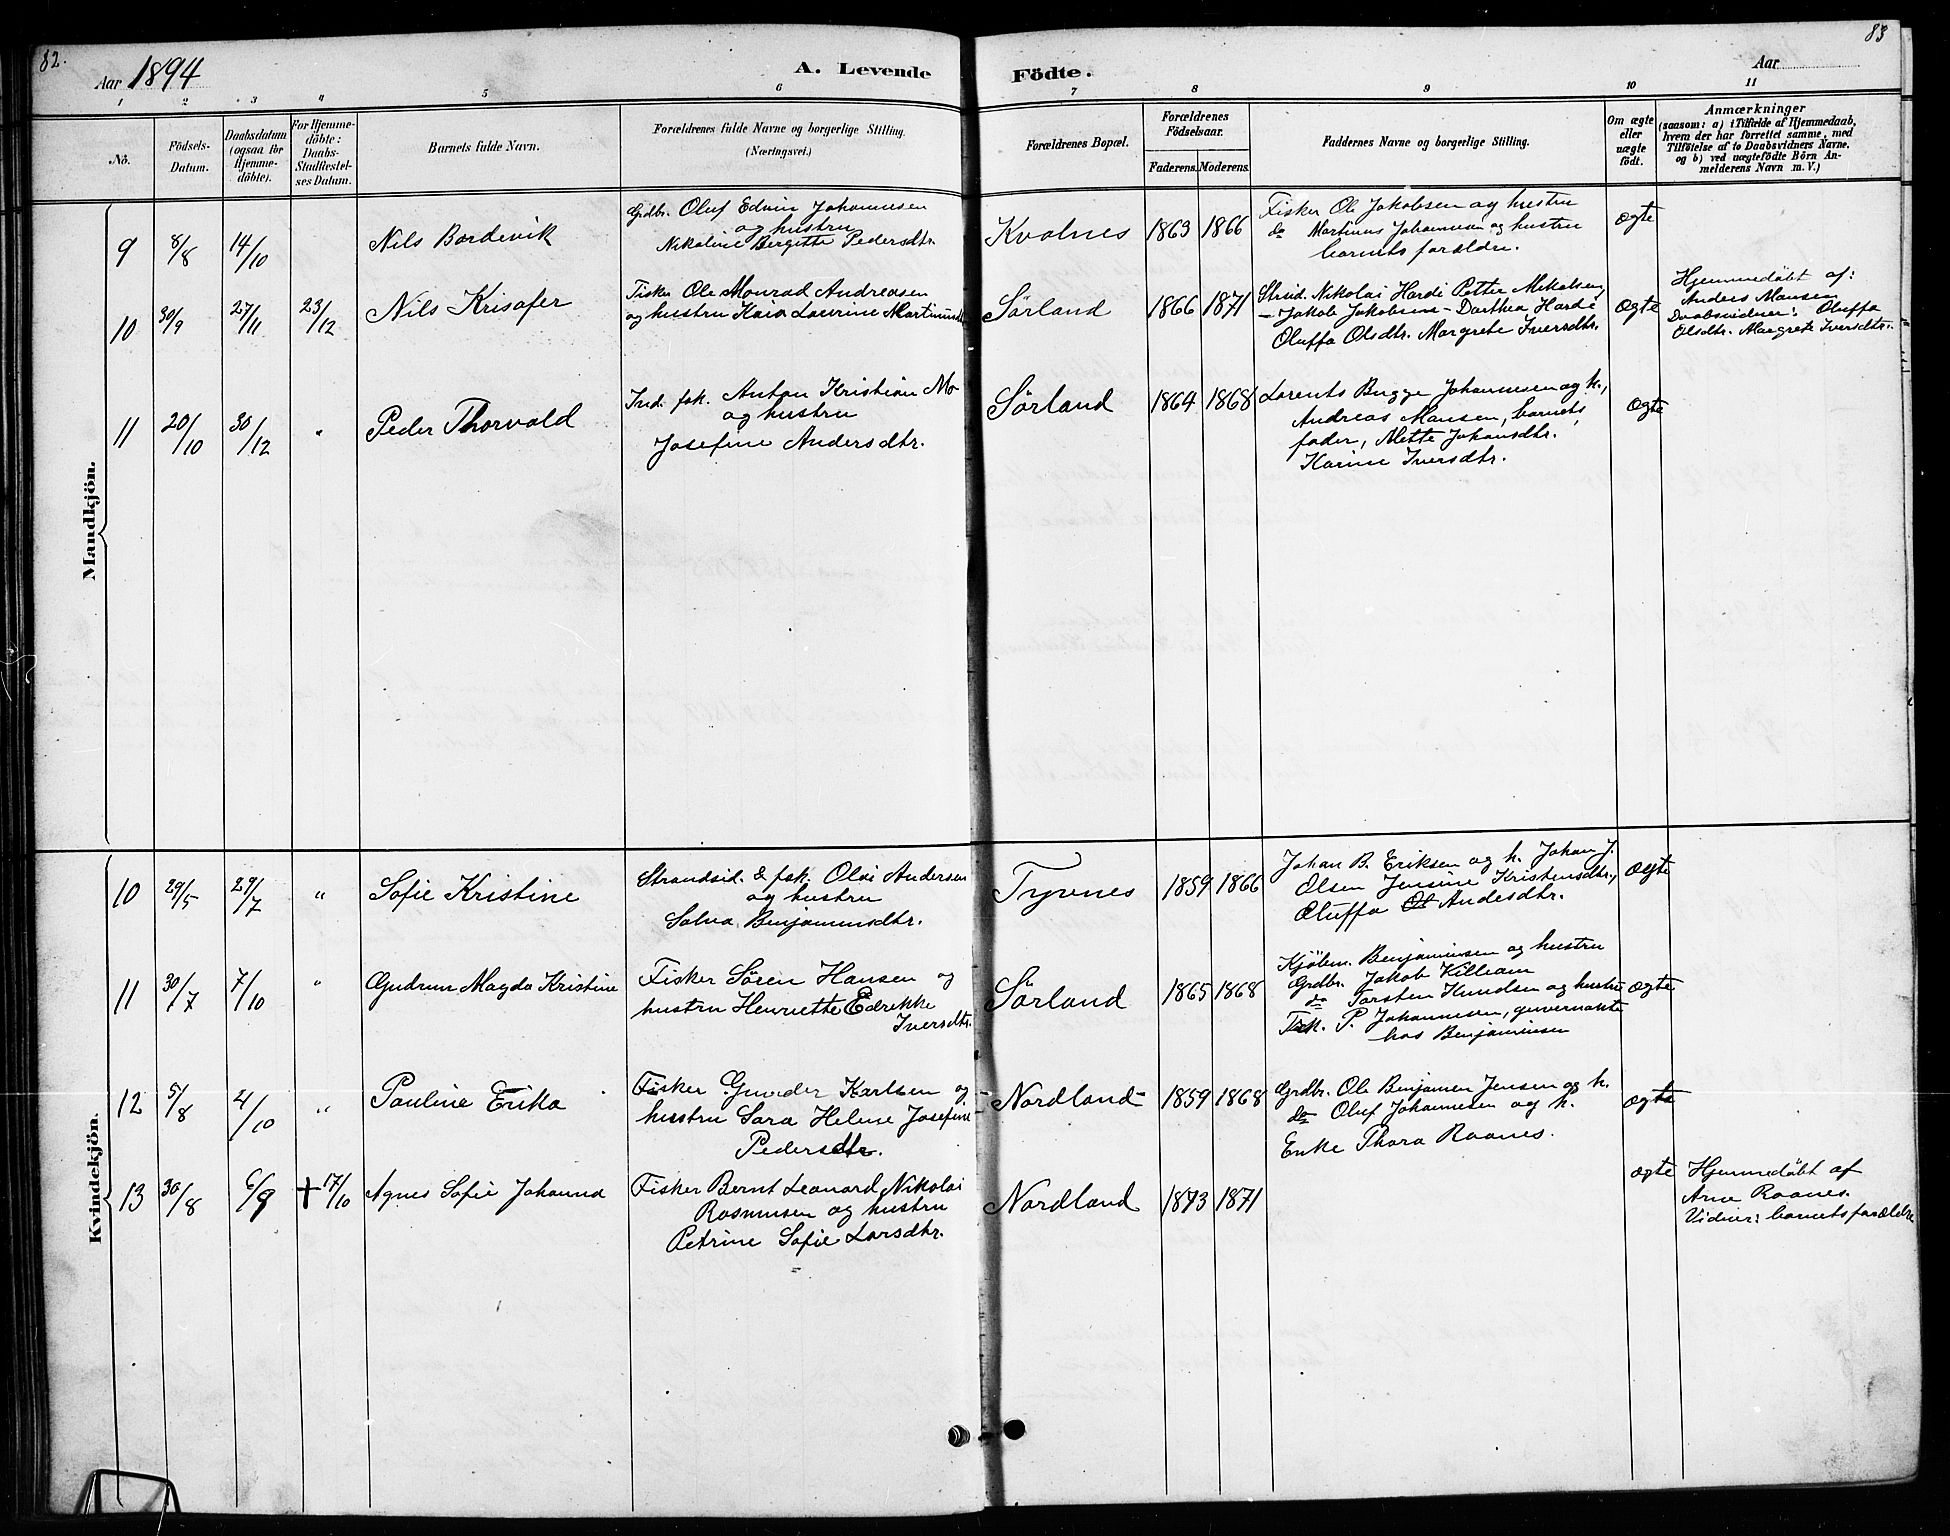 82.
83
Aar 1894
A. Levende Födte.
Aar
1 2 3 4 5 6 7 8 9 10 11
No.
Födsels-
Datum.
Daabsdatum
(ogsaa for
Hjemme-
döbte).
For Hjemme-
döbte:
Daabs-
Stadfæstel-
ses Datum.
Barnets fulde Navn.
Forældrenes fulde Navne og borgerlige Stilling.
(Næringsvei.)
Forældrenes Bopæl.
Forældrenes
Födselsaar.
Faderens. Moderens.
Faddernes Navne og borgerlige Stilling.
Om ægte
eller
uægte
födt.
Anmærkninger
(saasom: a) i Tilfælde af Hjemmedaab,
hvem der har forrettet samme, med
Tilföielse af to Daabsvidners Navne.
og b) ved uægtefödte Börn An-
melderens Navn m. V.)
Mandkjön.
9 8/8 14/10 Nils Bordevik
Grdbr. Oluf Edvin Johannesen
og hustru
Nikoline Bergitte Pedersdtr.
Kvalnes 1863 1866
Fisker Ole Jakobsen og hustru
do Martinus Johannesen og hustru
barnets forældre.
ægte
10 30/9 27/11 23/12 Nils Krisofer
Fisker Ole Monrad Andreasen
og hustru Kaia Laurine Martinusdtr
Sørland 1866 1871
Strsid. Nikolai Hardi Petter Mikalsen,
– Jakob Jakobsen – Dorthea Hardi
Oluffa Olsdtr. Margrete Iversdtr.
ægte
Hjemmedøbt af:
Anders Hansen
Daabsvidner: Oluffa
Olsdtr. Margrete Iversdtr.
11 20/10 30/12 " Peder Thorvald
Ind. fsk. Anton Kristian Mo
og hustru
Josefine Andersdtr.
Sørland 1864 1868
Lorents Bugge Johannesen og h.,
Andreas Hansen, barnets
fader, Mette Johansdtr.
Karine Iversdtr.
ægte
Kvindekjön.
10 29/5 29/7 " Sofie Kristine
Strandsid. & fsk. Olai Andersen
og hustru
Salva Benjaminsdtr.
Tyvnes 1859 1866
Johan B. Eriksen og h. Johan J.
Olsen Jensine Kristensdtr.,
Oluffa Ol Andesdtr.
ægte
11 30/7 7/10 " Gudrun Magda Kristine
Fisker Sören Hansen og
hustru Henriette Edrekke
Iversdtr.
Sørland 1865 1868
Kjøbm. Benjaminsen og hustru
Grdbr. Jakob Killeam
do Torsten Knudsen og hustru
Fisk. P. Johannesen, guvernante
hos Benjaminsen
ægte
12 5/8 4/10 " Pauline Erika
Fisker Gunder Karlsen og
hustru Sara Helene Josefine
Pedersdtr.
Nordland 1859 1868
Grdbr. Ole Benjamin Jensen og h.
do Oluf Johannesen og h.
Enke Thora Raanes.
ægte
13 30/8 6/9 + 17/10 Agnes Sofie Johanna
Fisker Bernt Leonard Nikolai
Rasmusen og hustru
Petrine Sofie Larsdtr.
Nordland 1873 1871
ægte
Hjemmedøbt af
Arne Raanes.
Vidner: barnets forældre